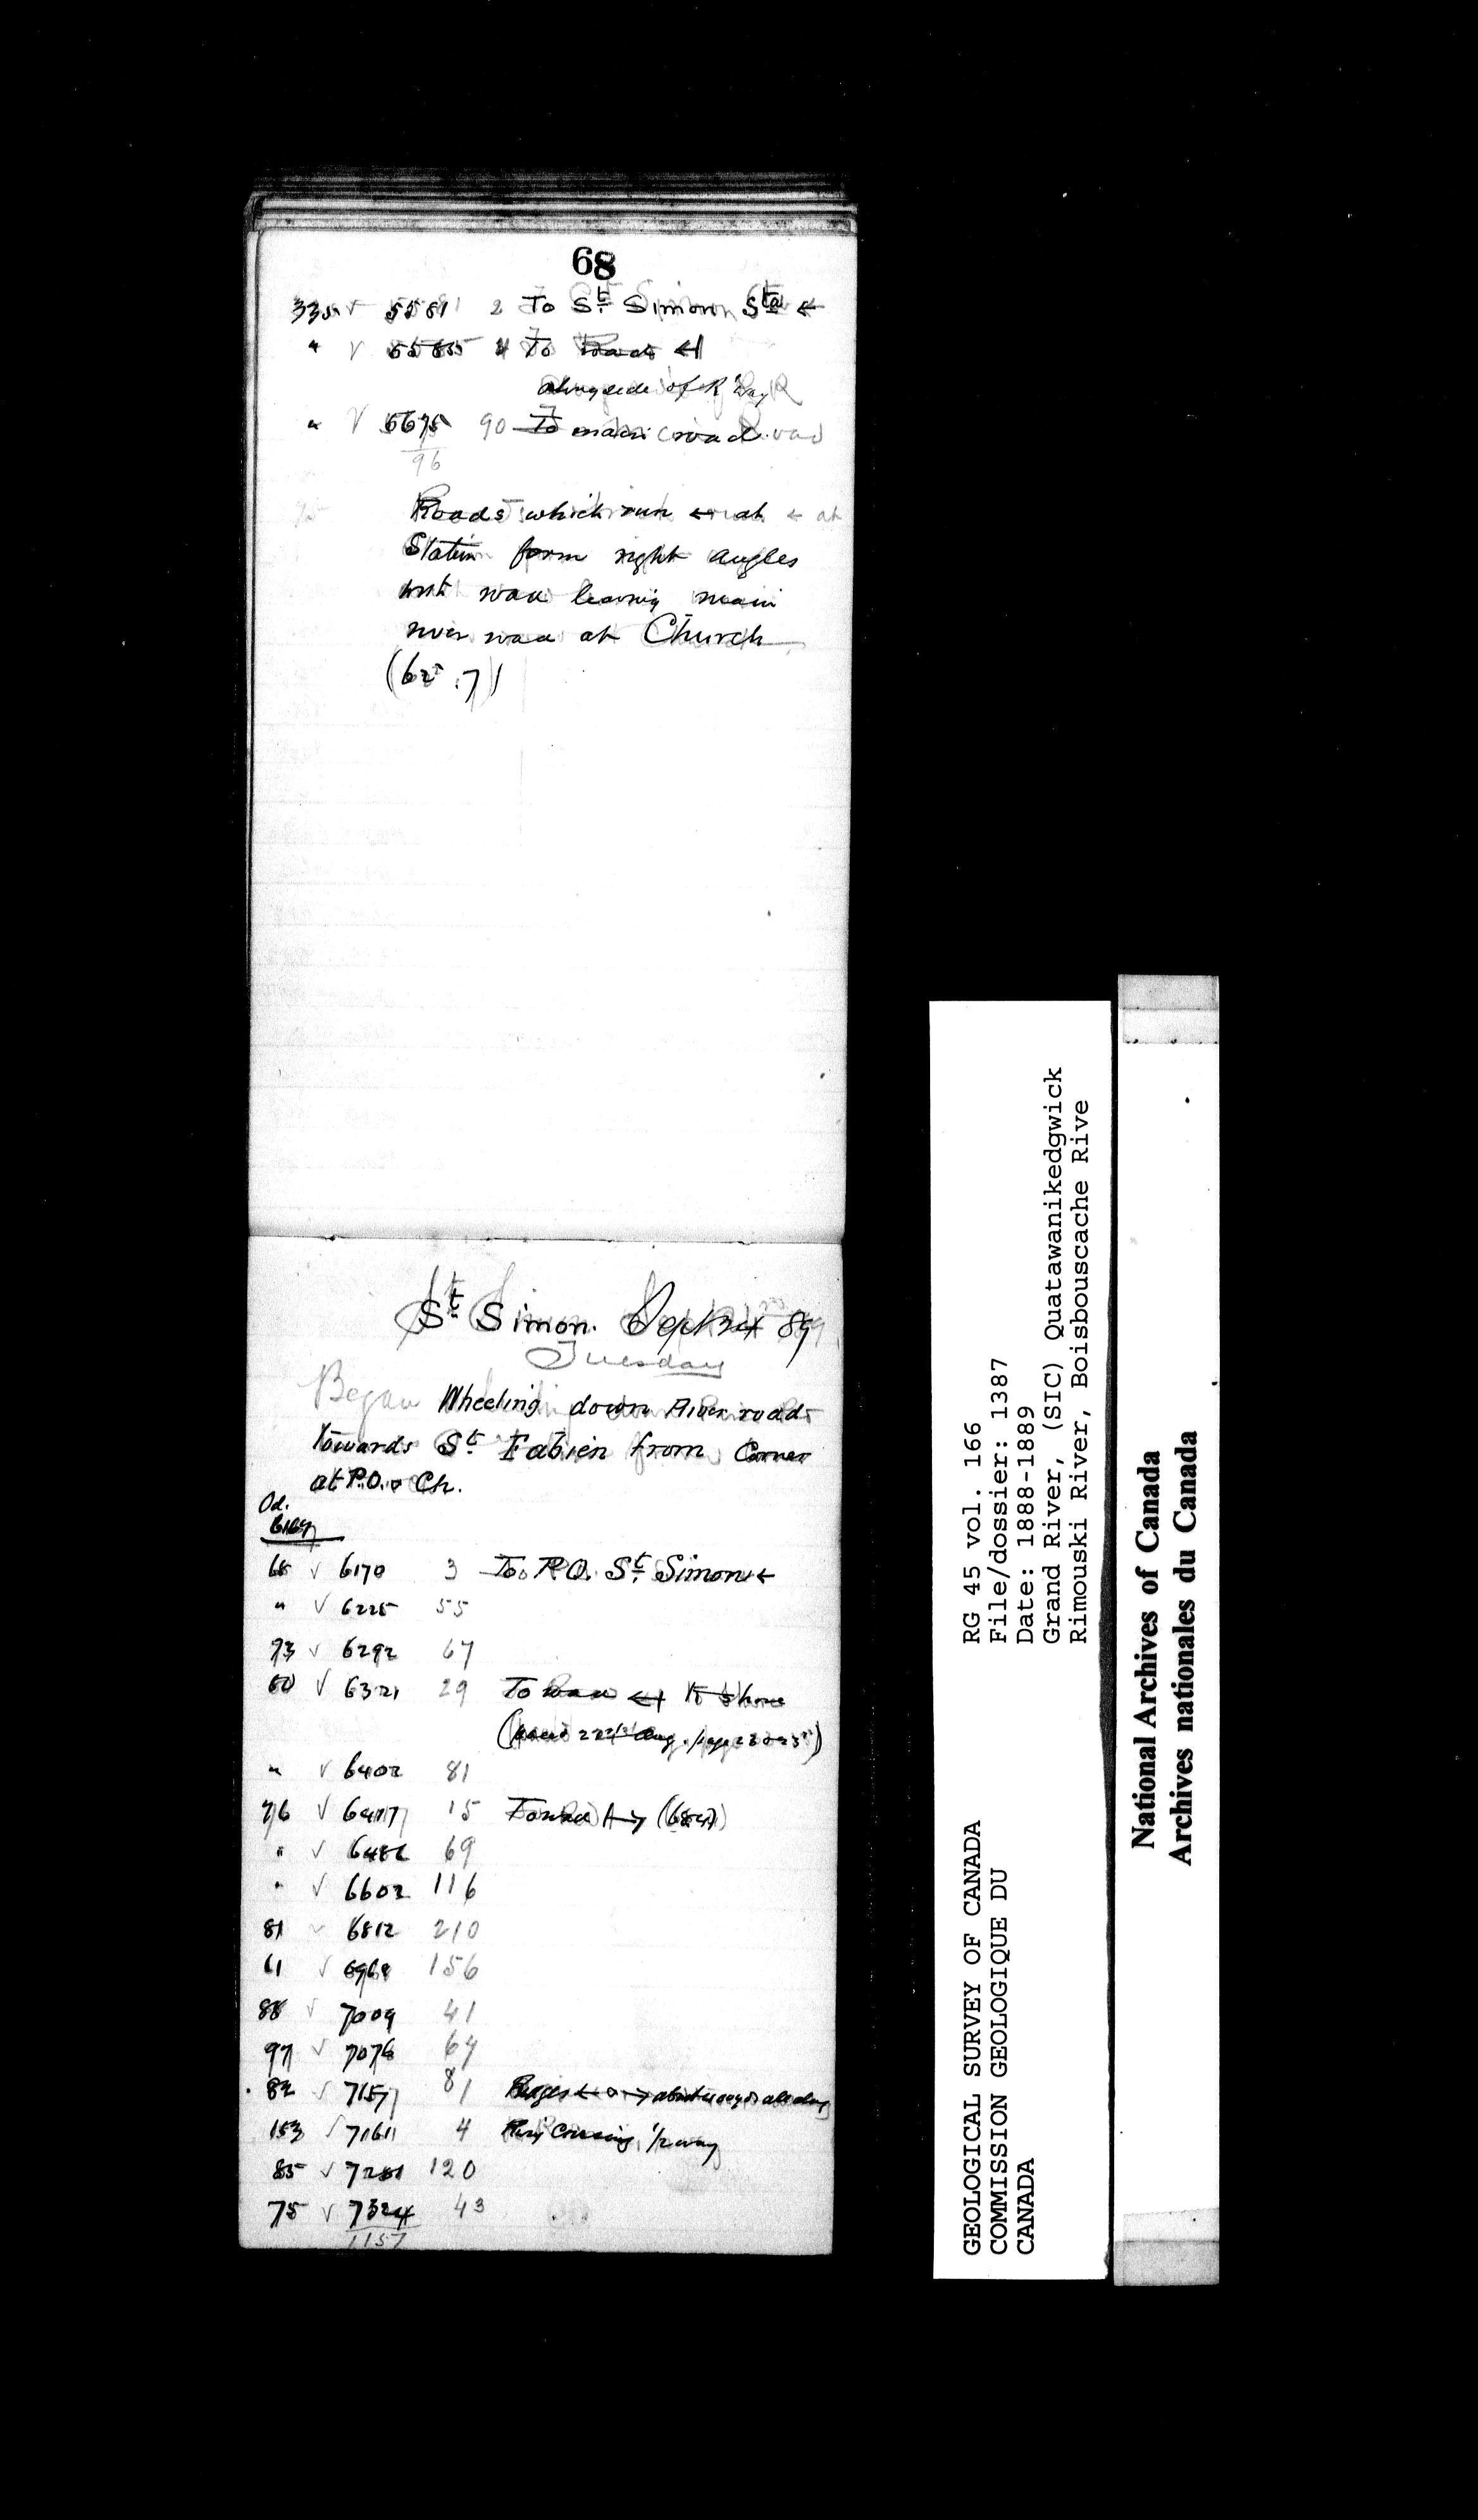 68
335 √ 5581 2 To St Simon Sta ←
" √ 5585 4 To Road ←|
alongside of R'way
" √ 5675 90 To main road
96
Roads which run ← at
Station form right angles
with road leaving main
river road at Church
St Simon. Sept 24 89
Tuesday
Began Wheeling down River road
towards St Fabien from Corner
at P.O. & Ch.
Od.
6167
68 √ 6170 3 To P.O. St Simon ←
" √ 6225 55
73 √ 6292 67
60 √ 6321 29 To road ←| to shore
" √ 6402 81
76 √ 6417 15 To road |→
" √ 6486 69
" √ 6602 116
81 √ 6812 210
61 √ 6968 156
88 √ 7009 41
97 √ 7076 67
82 √ 7157 81 Ridges ← & → about
153 √ 7161 4 Rwy Crossing 1/2 way
85 √ 7281 120
75 √ 7324 43
1157
GEOLOGICAL SURVEY OF CANADA
COMMISSION GEOLOGIQUE DU
CANADA
RG 45 vol. 166
File/dossier: 1387
Date: 1888-1889
Grand River, (SIC) Quatawanikedgwick
Rimouski River, Boisbouscache Rive
National Archives of Canada
Archives nationales du Canada